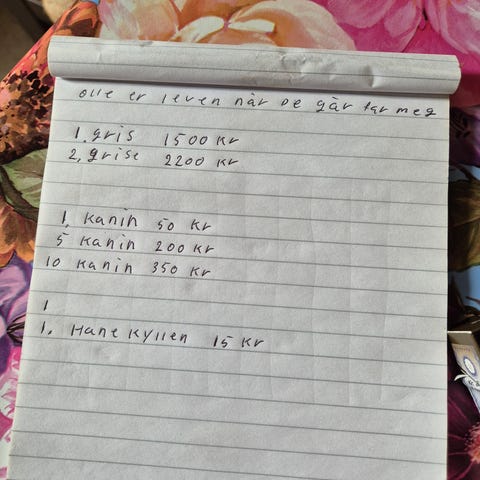 olle er leven når de går fær meg
1. gris 1500 kr
2, grise 2200 kr
1, kanin 50 kr
5 kanin 200 kr
10 kanin 350 kr
1
1. Hane kyllen 15 kr